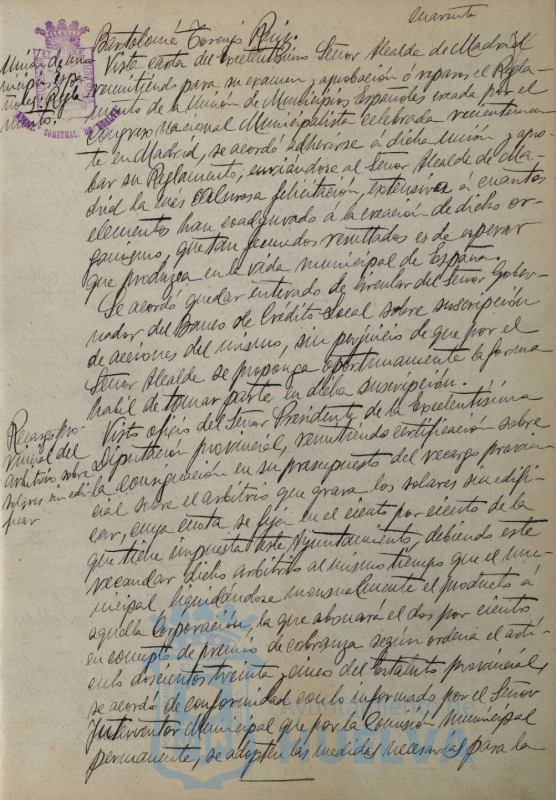 Cuarenta
Bartolomé Ruiz.
Unión de mu-
nicipios espa-
ñoles. Regla-
mento.
Vista carta del Excelentísimo Señor Alcalde de Madrid
remitiendo para su examen, aprobación ó reparos el Regla-
mento de la Unión de Municipios Españoles creada por el
Congreso Nacional Municipalista celebrado recientemen-
te en Madrid, se acordó adherirse á dicha Unión y apro-
bar su Reglamento, enviándose al Señor Alcalde de Ma-
drid la más calurosa felicitación, extensiva á cuantos
elementos han coadyuvado á la creación de dicho or-
ganismo, que tan fecundos resultados es de esperar
que produzca en la vida municipal de España.
Se acordó quedar enterado de circular del Señor Gober-
nador del Banco de Crédito Local sobre suscripción
de acciones del mismo, sin perjuicio de que por el
Señor Alcalde se proponga oportunamente la forma
hábil de tomar parte en dicha suscripción.
Recargo pro-
vincial del
arbitrio sobre
solares sin edi-
ficar
Visto oficio del Señor Presidente de la Excelentísima
Diputación provincial, remitiendo certificación sobre
la consignación en su presupuesto del recargo provin-
cial sobre el arbitrio que grava los solares sin edifi-
car, cuya cuota se fija en el ciento por ciento de la
que tiene impuesta este Ayuntamiento, debiendo este
recaudar dicho arbitrio al mismo tiempo que el mu-
nicipal, liquidándose mensualmente el producto á
aquella Corporación, la que abonará el dos por ciento
en concepto de premio de cobranza según ordena el artí-
culo doscientos treinta y cinco del Estatuto provincial,
se acordó de conformidad con lo informado por el Señor
Interventor Municipal que por la Comisión Municipal
permanente, se adopten las medidas necesarias para la